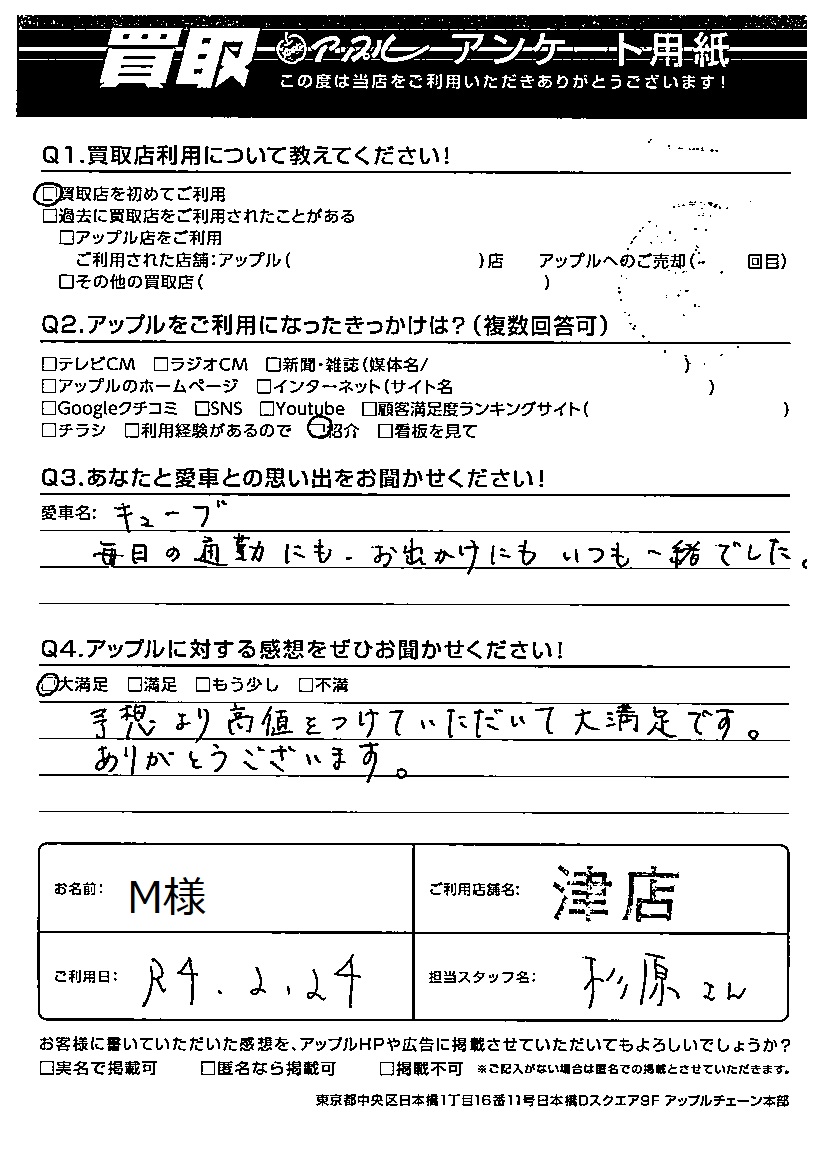 買取 アップル アンケート用紙
この度は当店をご利用いただきありがとうございます!
Q1.買取店利用について教えてください!
□買取店を初めてご利用
□過去に買取店をご利用されたことがある
□アップル店をご利用
ご利用された店舗:アップル( )店 アップルへのご売却( 回目)
□その他の買取店( )
Q2.アップルをご利用になったきっかけは?(複数回答可)
□テレビCM □ラジオCM □新聞・雑誌(媒体名/ )
□アップルのホームページ □インターネット(サイト名 )
□Googleクチコミ □SNS □Youtube □顧客満足度ランキングサイト( )
□チラシ □利用経験があるので □紹介 □看板を見て
Q3.あなたと愛車との思い出をお聞かせください!
愛車名: キューブ
毎日の通勤にも、お出かけにもいつも一緒でした。
Q4.アップルに対する感想をぜひお聞かせください!
□大満足 □満足 □もう少し □不満
予想より高値をつけていただいて大満足です。
ありがとうございます。
お名前: M様 ご利用店舗名: 津店
ご利用日: R4.2.24 担当スタッフ名: 杉原さん
お客様に書いていただいた感想を、アップルHPや広告に掲載させていただいてもよろしいでしょうか?
□実名で掲載可 □匿名なら掲載可 □掲載不可 ※ご記入がない場合は匿名での掲載とさせていただきます。
東京都中央区日本橋1丁目16番11号日本橋Dスクエア9F アップルチェーン本部